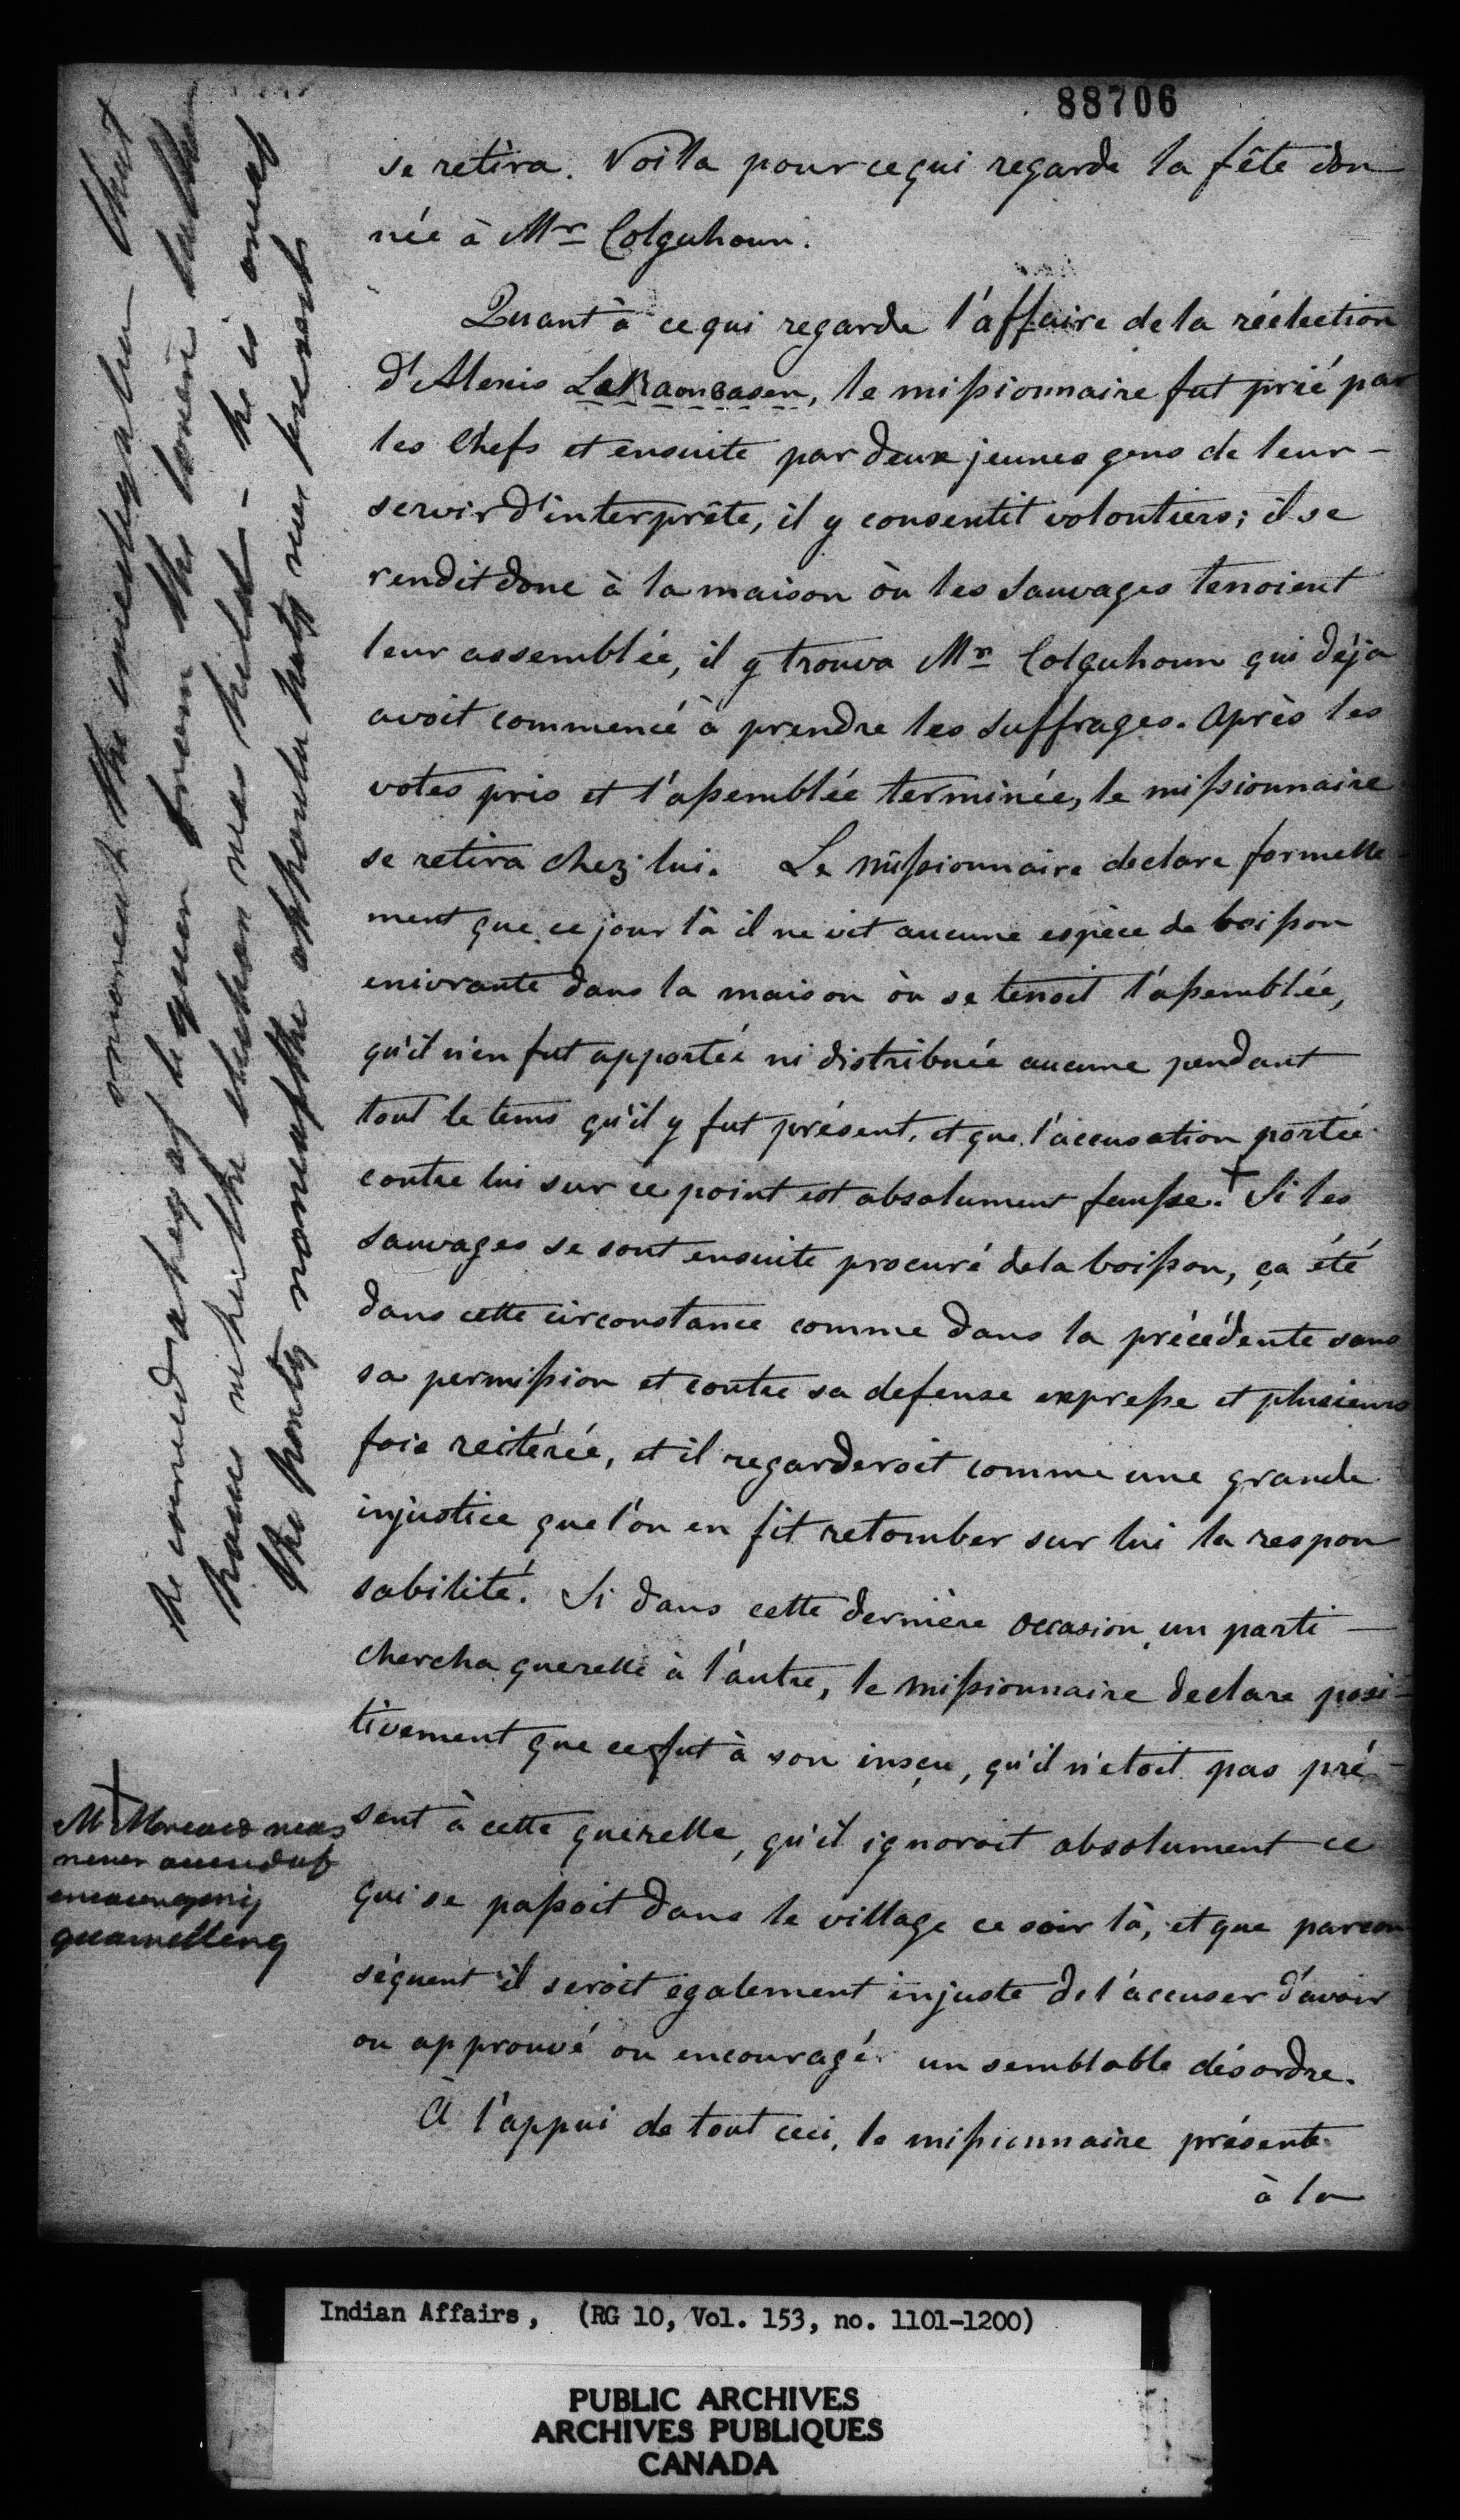 88706
se retira. Voila pour ce qui regarde la fête don
née à Mr Colquhoun.
Quant à ce qui regarde l'affaire de la réélection
d'Alexis , le missionnaire fut prié par
les Chefs et ensuite par deux jeunes gens de leur -
servir d'interprête, il y consentit volontiers; il se
rendit donc à la maison òu les Sauvages tenoient
leur assemblée, il y trouva Mr Colquhoun qui déja
avoit commencé à prendre les suffrages. Après les
votes pris et l'assemblée terminée, le missionnaire
se retira chez lui. Le missionnaire declare formelle
ment que ce jour là il ne vit aucune espèce de boisson
enivrante dans la maison òu se tenoit l'assemblée,
qu'il n'en fut apportée ni distribuée aucune pendant
tout le tems qu'il y fut présent, et que l'accusation portée
contre lui sur ce point est absolument fausse. + Si les
Sauvages se sont ensuite procuré de la boisson, ça été
dans cette circonstance comme dans la précédente sans
sa permission et contre sa defense expresse et plusieurs
fois reitérée, et il regarderoit comme une grande
injustice que l'on en fit retomber sur lui la respon
sabilité. Si dans cette dernière occasion un parti -
chercha querelle à l'autre, le missionnaire declare posi-
tivement que ce fut à son insçu, qu'il n'etoit pas pré-
sent à cette querelle, qu'il ignoroit absolument ce
qui se passoit dans le village ce soir là, et que parcon
séquent il seroit également injuste de l'accuser d'avoir
ou approuvé ou encouragé un semblable désordre.
A l'appui de tout ceci, le missionnaire présente
à la
 the investigation that
he carried a keg of liquor from the tavern to the
house where the election was held - he is one of
the party none of the opposite party was present
+
Mr Marcoux was
never accused of
encouraging
quarrelling
Indian Affairs, (RG 10, Vol. 153, no. 1101-1200)
PUBLIC ARCHIVES
ARCHIVES PUBLIQUES
CANADA